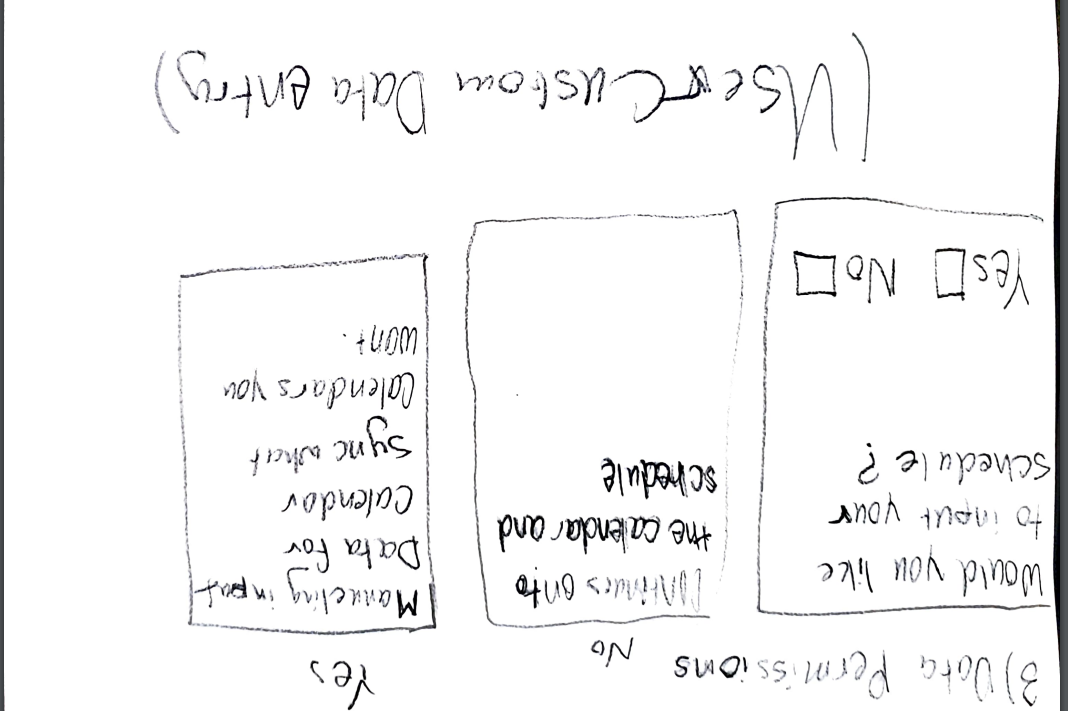 3) Data Permissions
Would you like
to input your
schedule?
Yes No
No
Continues onto
the calendar and
schedule
Yes
Manueling input
Data for
Calendar
Sync what
Calendars you
want.
(User Custom Data entry)